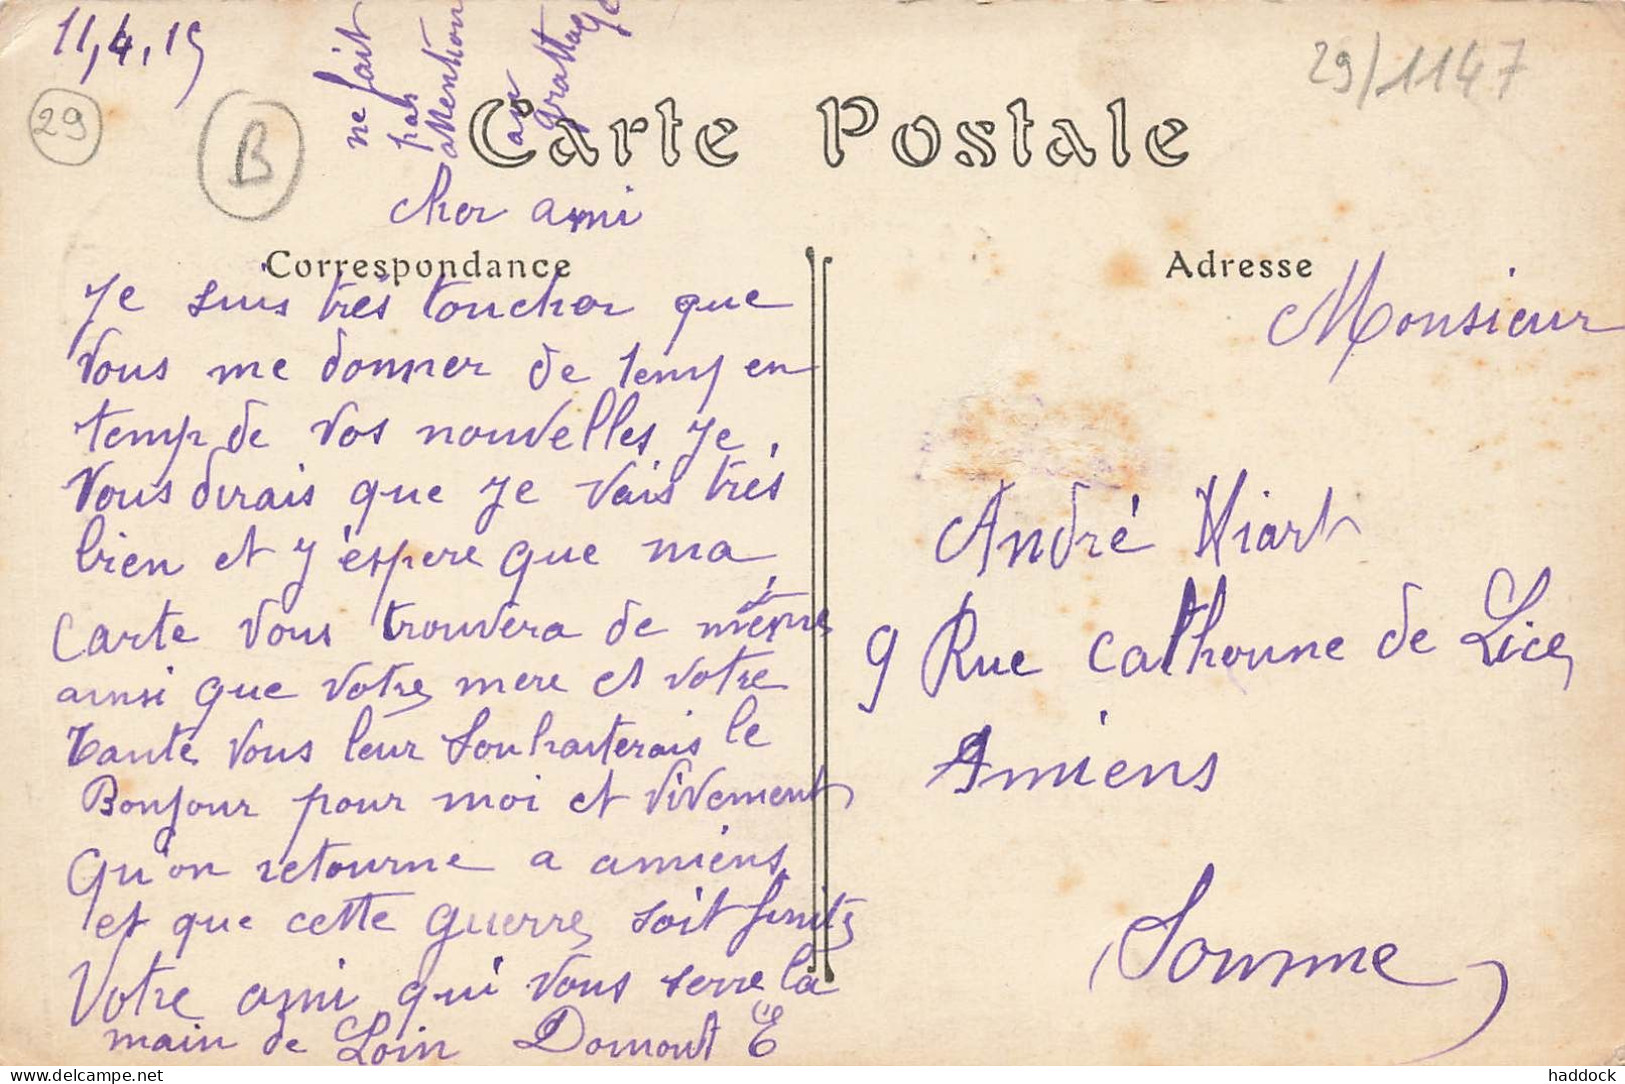 11,4,15
ne fait
pas
attention
au
grattage
29/1147
29
B
Carte Postale
cher ami
Correspondance
Je suis très toucher que
vous me donner de temp en
temp de vos nouvelles Je
vous dirais que Je vais très
bien et J'éspere que ma
carte vous trouvera de même
ainsi que votre mere et votre
tante vous leur souhaiterais le
Bonjour pour moi et vivement
Qu'on retourne a amiens
et que cette guerre soit finite
Votre ami qui vous serre la
main de Loin Domont E
Adresse
Monsieur
André Hiart
9 Rue Cathonne de Lice
Amiens
Somme
delcampe.net
haddock